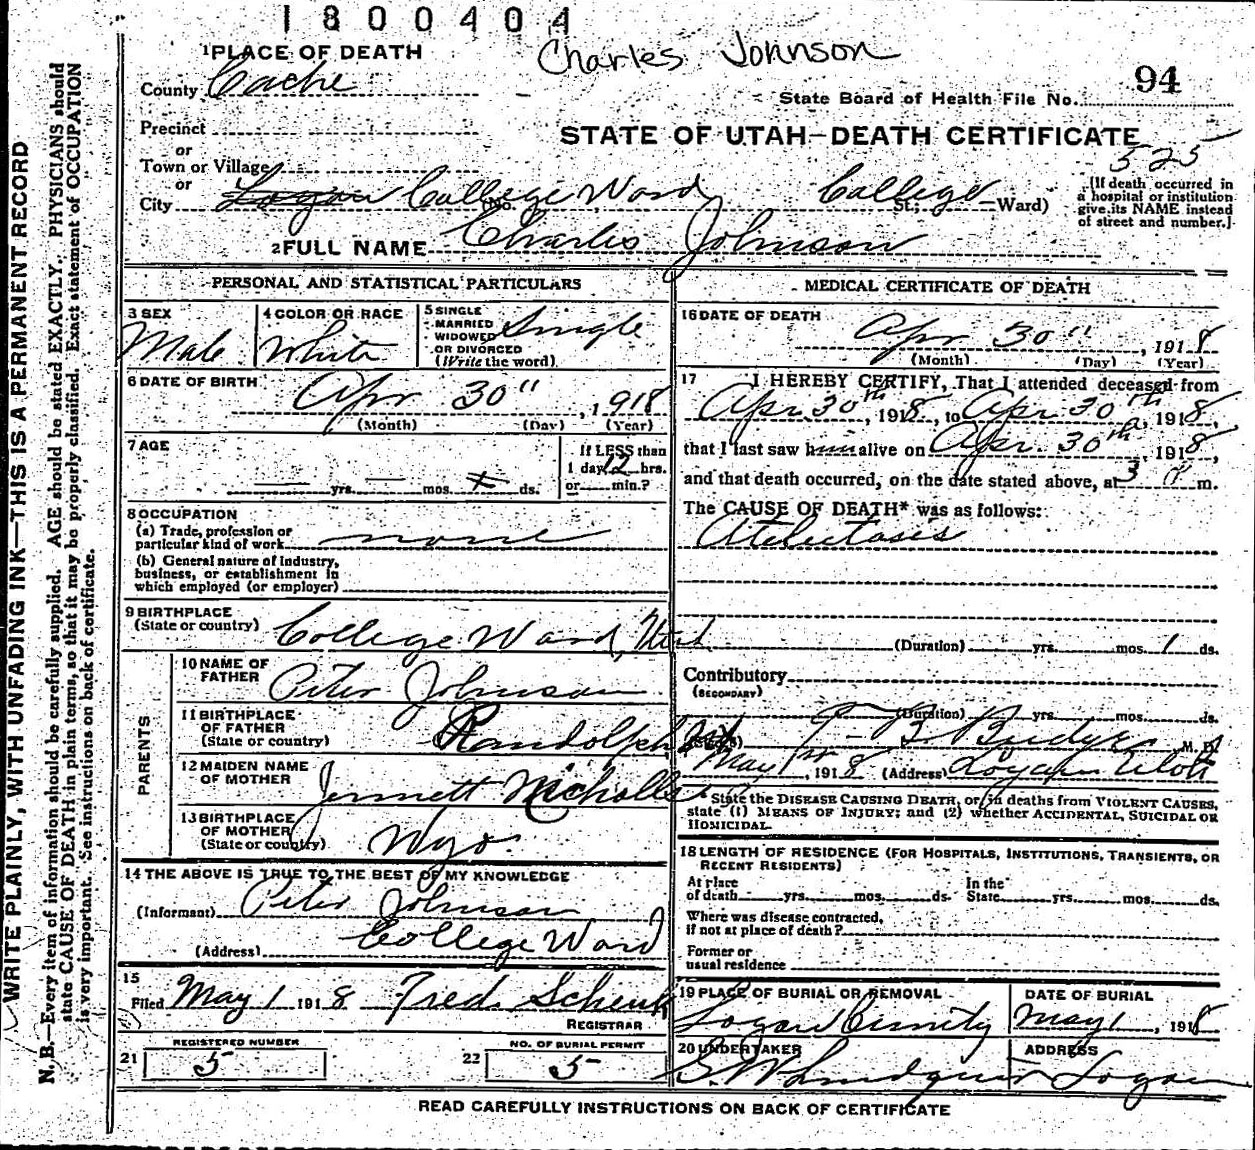 1800404
Charles Johnson
1 PLACE OF DEATH
County Cache
94
State Board of Health File No.
Precinct
or
STATE OF UTAH—DEATH CERTIFICATE
525
Town or Village
or
City Logan College Ward (No. College St.; Ward)
[If death occurred in a hospital or institution give its NAME instead of street and number.]
2 FULL NAME Charles Johnson
PERSONAL AND STATISTICAL PARTICULARS
3 SEX
Male
4 COLOR OR RACE
White
5 SINGLE
MARRIED
WIDOWED
OR DIVORCED
(Write the word)
Single
6 DATE OF BIRTH
Apr 30", 1918
(Month) (Day) (Year)
7 AGE
yrs. mos. ds.
If LESS than
1 day 12 hrs.
or min.?
8 OCCUPATION
(a) Trade, profession or
particular kind of work none
(b) General nature of Industry,
business, or establishment in
which employed (or employer)
9 BIRTHPLACE
(State or country) College Ward, Utah
PARENTS
10 NAME OF
FATHER Peter Johnson
11 BIRTHPLACE
OF FATHER
(State or country) Randolph Ut
12 MAIDEN NAME
OF MOTHER Jennett Nicholls
13 BIRTHPLACE
OF MOTHER
(State or country) Wyo.
14 THE ABOVE IS TRUE TO THE BEST OF MY KNOWLEDGE
(Informant) Peter Johnson
(Address) College Ward
15
Filed May 1 1918 Fred Schenk
REGISTRAR
REGISTERED NUMBER
21 5
NO. OF BURIAL PERMIT
22 5
MEDICAL CERTIFICATE OF DEATH
16 DATE OF DEATH
Apr 30", 1918
(Month) (Day) (Year)
17 I HEREBY CERTIFY, That I attended deceased from
Apr 30th, 1918, to Apr. 30th, 1918,
that I last saw him alive on Apr. 30th, 1918,
and that death occurred, on the date stated above, at 3 m.
The CAUSE OF DEATH* was as follows:
Atelectasis
(Duration) yrs. mos. 1 ds.
Contributory
(SECONDARY)
(Duration) yrs. mos. ds.
(Signed) Budge M. D.
May 1st, 1918 (Address) Logan Utah
* State the DISEASE CAUSING DEATH, or, in deaths from VIOLENT CAUSES,
state (1) MEANS OF INJURY; and (2) whether ACCIDENTAL, SUICIDAL OR
HOMICIDAL.
18 LENGTH OF RESIDENCE (FOR HOSPITALS, INSTITUTIONS, TRANSIENTS, OR
RECENT RESIDENTS)
At place
of death yrs. mos. ds. In the
State yrs. mos. ds.
Where was disease contracted,
if not at place of death?
Former or
usual residence
19 PLACE OF BURIAL OR REMOVAL
Logan
DATE OF BURIAL
May 1, 1918
20 UNDERTAKER
Lindquist
ADDRESS
Logan
READ CAREFULLY INSTRUCTIONS ON BACK OF CERTIFICATE
WRITE PLAINLY, WITH UNFADING INK—THIS IS A PERMANENT RECORD
N. B.—Every item of information should be carefully supplied. AGE should be stated EXACTLY. PHYSICIANS should
state CAUSE OF DEATH in plain terms, so that it may be properly classified. Exact statement of OCCUPATION
is very important. See instructions on back of certificate.